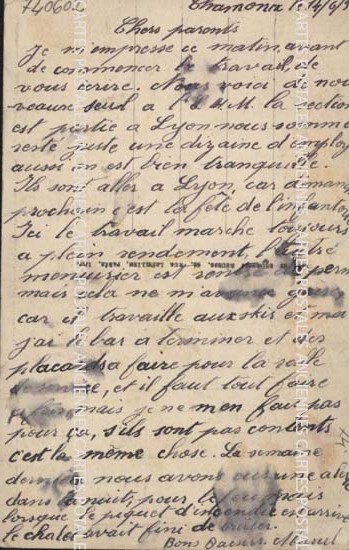 74060
Chamonix le 14/6/3
Chers parents
Je m'empresse ce matin avant
de commencer le travail, de
vous écrire. Nous voici de nou
veau seul a l' H.M. la section
est partie a Lyon nous somme
resté juste une dizaine d'employ
aussi on est bien tranquille.
Ils sont aller a Lyon, car dimanc
prochain c'est la fête de l'infanterie
Ici le travail marche toujours
a plein rendement, l'autre
menuisier est
mais cela ne
car il travaille aussi
j'ai le bar a terminer et des
placards a faire pour la salle
et il faut tout faire
mais je ne m'en fait pas
pour ça, s'ils sont pas contents
c'est la même chose. La semaine
dernière nous avons une ale
dans la nuit, pour le
lorsque le piquet d'incendie est arrivé
le chalet avait fini de bruler.
Bons Baisers. Marcel
ANCIENNES CARTES POSTALES